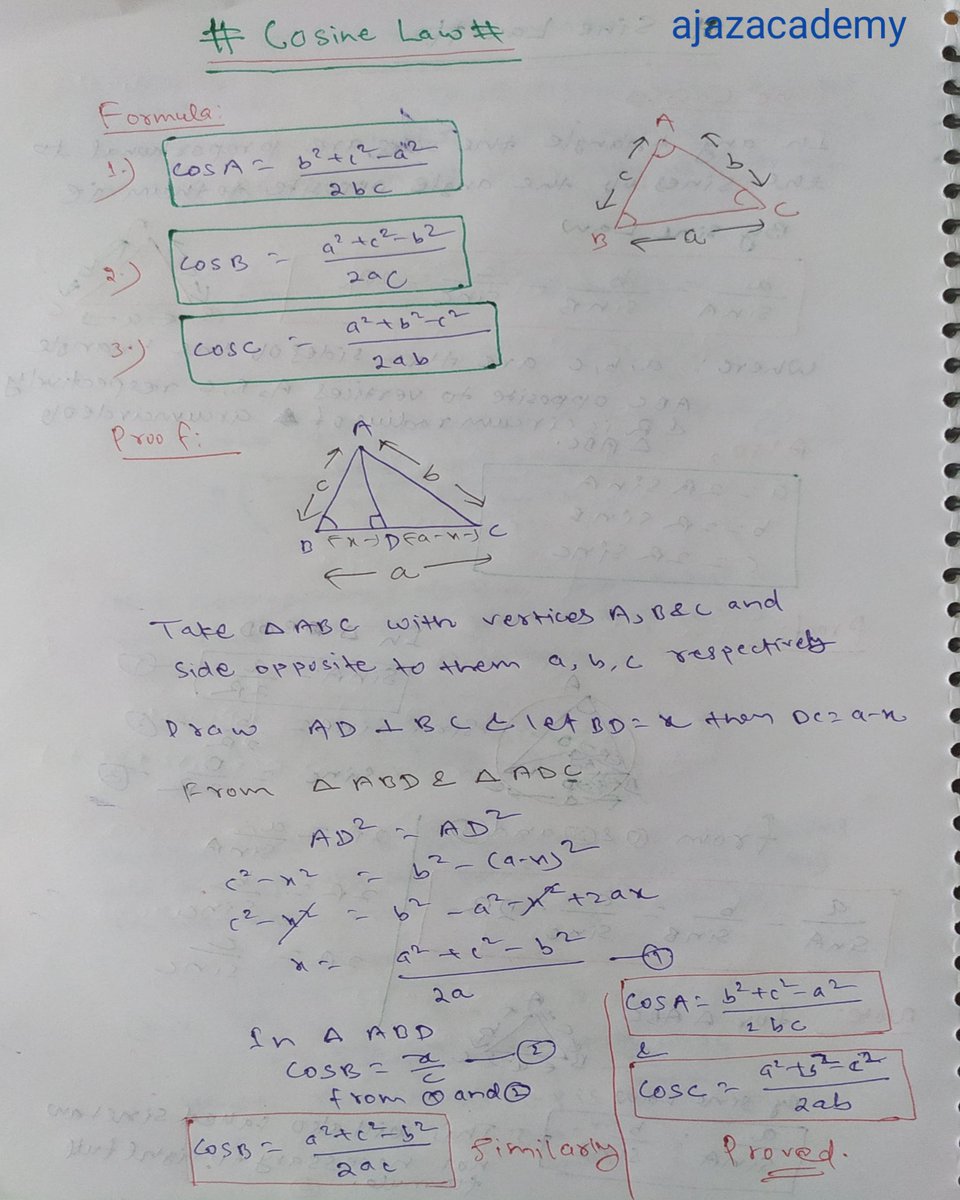 # Cosine Law #
ajazacademy
Formula:
1.) cosA = b²+c²-a² / 2bc
2.) cosB = a²+c²-b² / 2ac
3.) cosC = a²+b²-c² / 2ab
A
c
b
B
a
C
Proof:
A
c
b
B
x
D
a-x
C
a
Take △ABC with vertices A, B & C and
side opposite to them a, b, c respectively
Draw AD ⊥ BC & let BD = x then DC = a-x
From △ABD & △ADC
AD² = AD²
c²-x² = b²-(a-x)²
c²-x² = b²-a²-x²+2ax
x = a²+c²-b² / 2a —①
In △ABD
cosB = x/c —②
from ① and ②
cosB = a²+c²-b² / 2ac
Similarly
cosA = b²+c²-a² / 2bc
&
cosC = a²+b²-c² / 2ab
Proved.